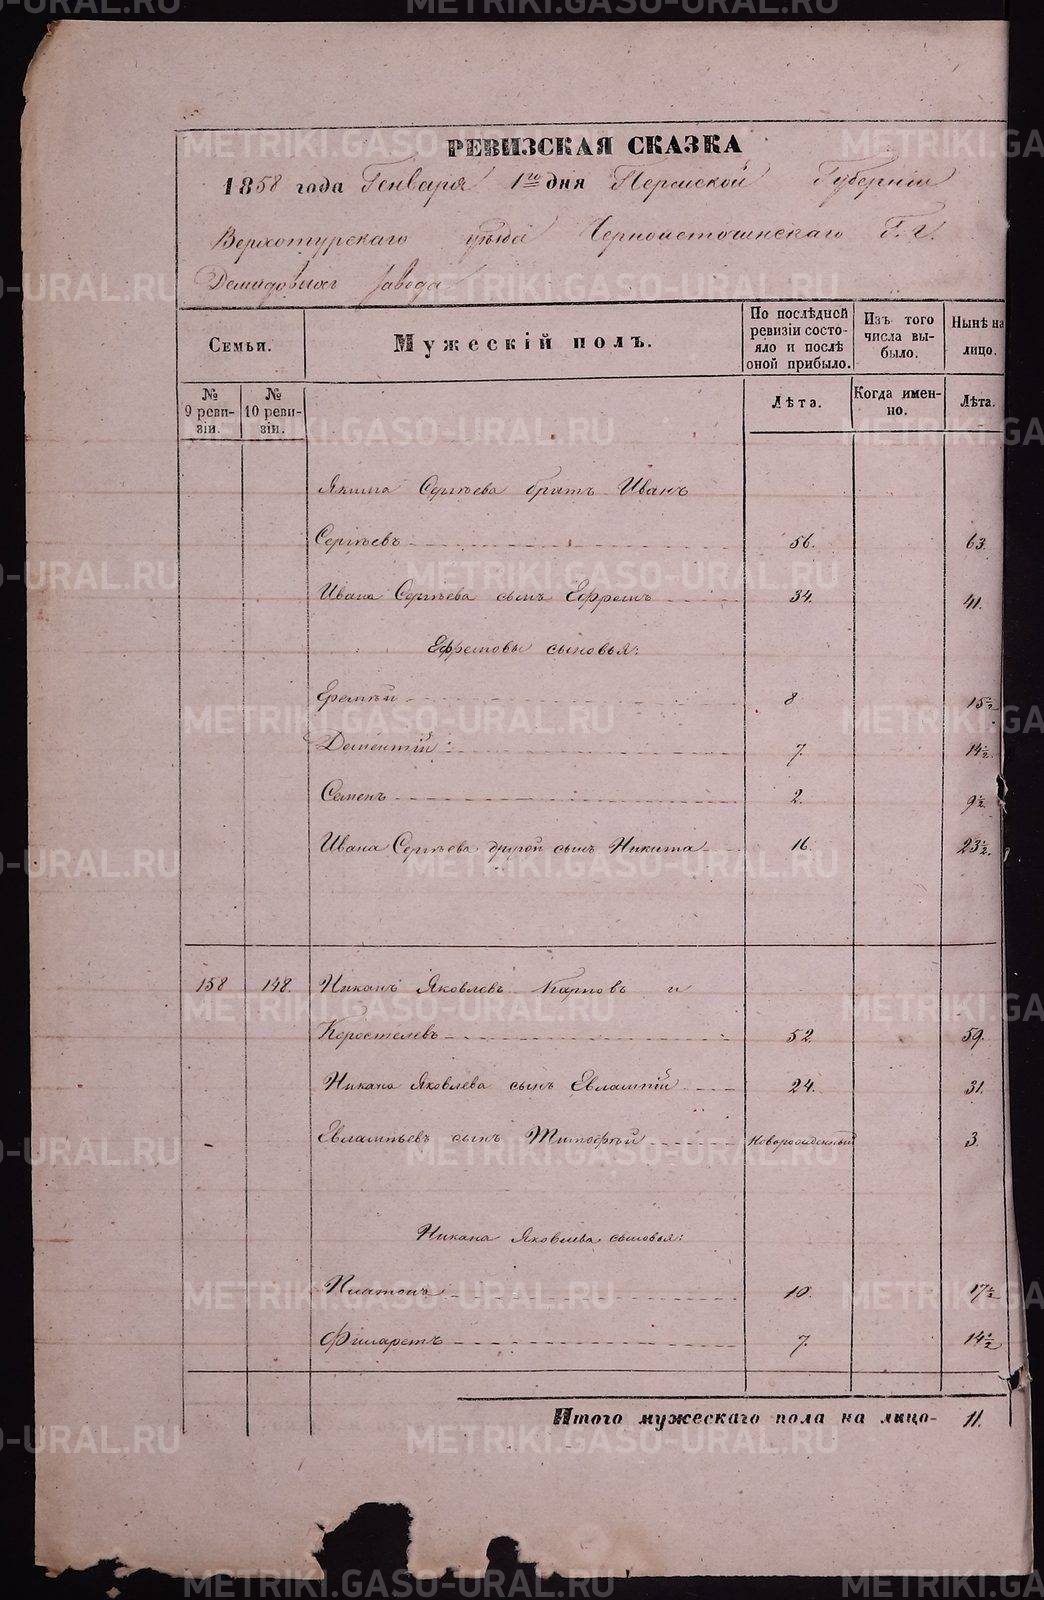 РЕВИЗСКАЯ СКАЗКА
1858 года Генваря 1го дня Пермской Губернiи
Верхотурскаго уѣзда Черноисточинскаго Г.г.
Демидовыхъ Завода
Семьи.
Мужескiй полъ.
По послѣдней ревизiи состояло и послѣ оной прибыло.
Изъ того числа выбыло.
Нынѣ на лицо.
№ 9 ревизiи.
№ 10 ревизiи.
Лѣта.
Когда именно.
Лѣта.
Якима Сергѣева братъ Иванъ
Сергѣевъ 56. 63.
Ивана Сергѣева сынъ Ефремъ 34. 41.
Ефремовы сыновья:
Еремѣй 8 15½
Дементiй 7. 14½
Семенъ 2. 9½
Ивана Сергѣева другой сынъ Никита 16. 23½
158 148. Никанъ Яковлевъ Карповъ и
Коростелевъ 52. 59.
Никана Яковлева сынъ Евлампiй 24. 31.
Евлампьевъ сынъ Тимофѣй Новорожденный 3.
Никана Яковлева сыновья:
Платонъ 10. 17½
Филаретъ 7. 14½
Итого мужескаго пола на лицо- 11.
METRIKI.GASO-URAL.RU